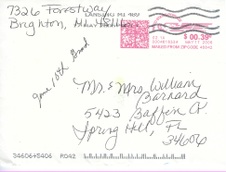 7326 Forestway
Brighton,
LANSING MI 489
$ 00.39⁰
Mr. & Mrs William
Barnard
5423 Baffin
Spring Hill, FL
34606
34606+5406 R042